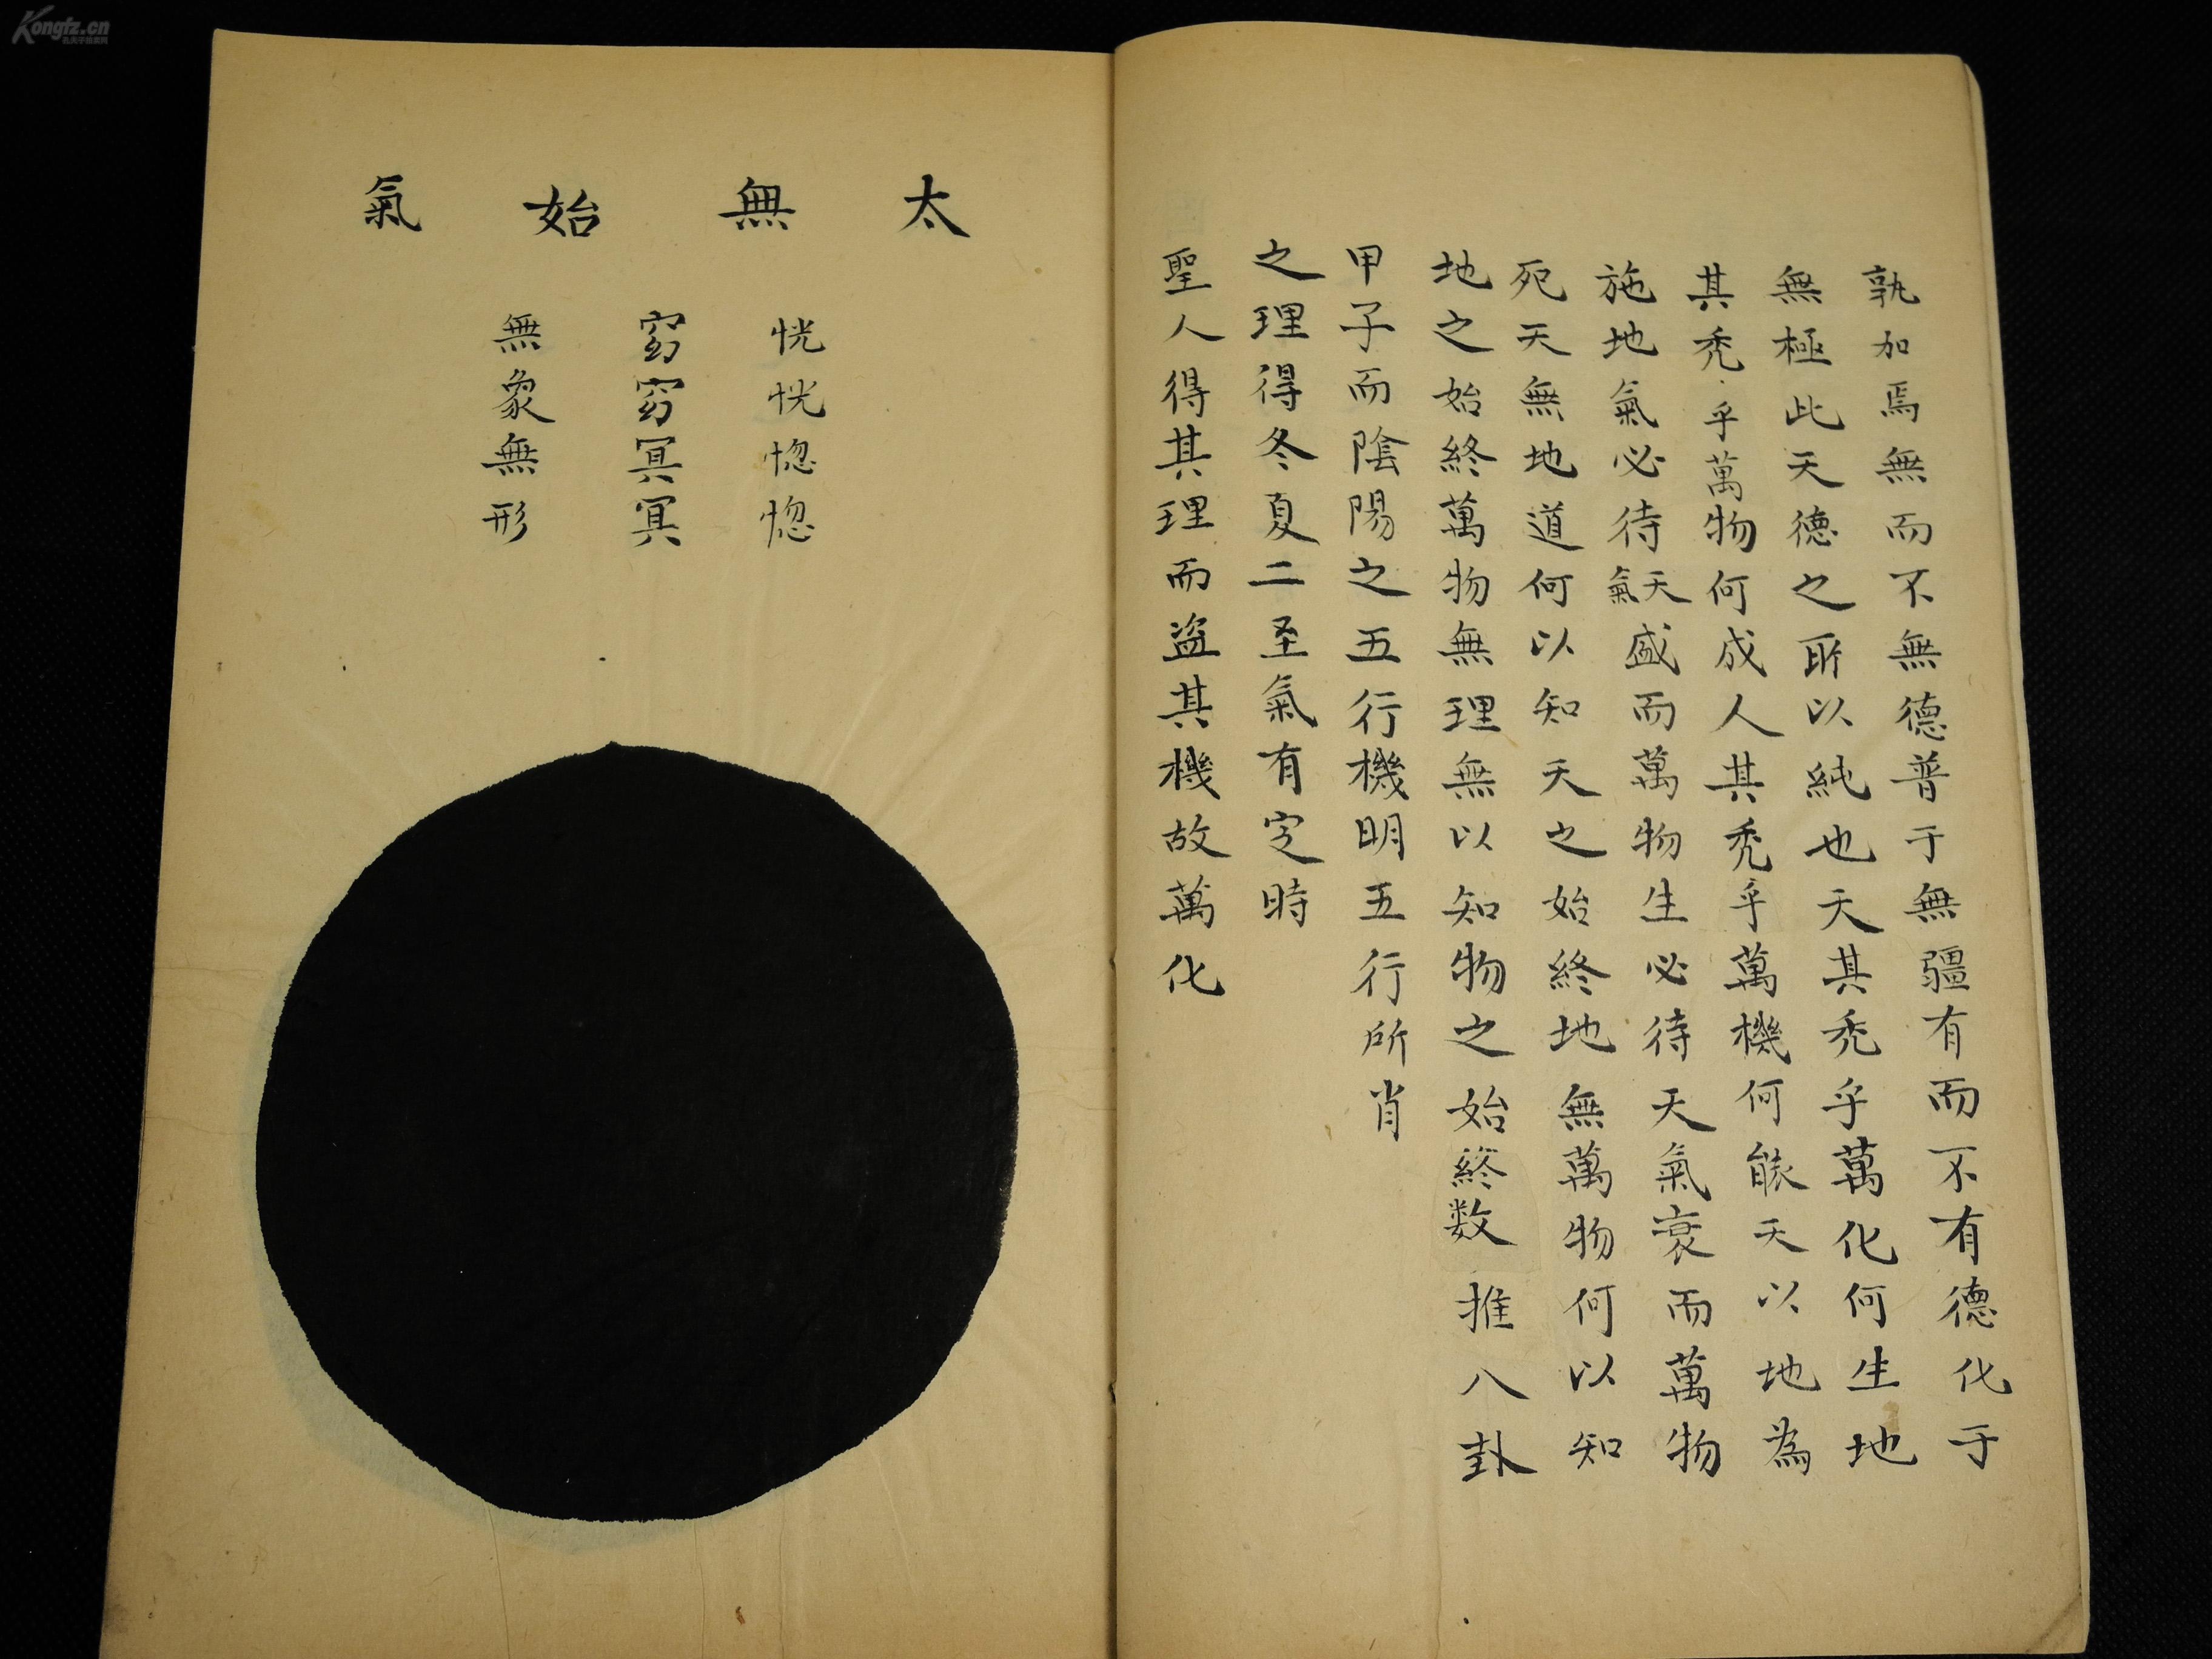 孰加焉無而不無德普于無疆有而不有德化于
無極此天德之所以純也天其禿乎萬化何生地
其禿乎萬物何成人其禿乎萬機何能天以地為
施地氣必待天氣盛而萬物生必待天氣衰而萬物
死天無地道何以知天之始終地無萬物何以知
地之始終萬物無理無以知物之始終数推八卦
甲子而陰陽之五行機明五行所肖
之理得冬夏二至氣有定時
聖人得其理而盜其機故萬化
太無始氣
恍恍惚惚
窈窈冥冥
無象無形
Kongfz.cn